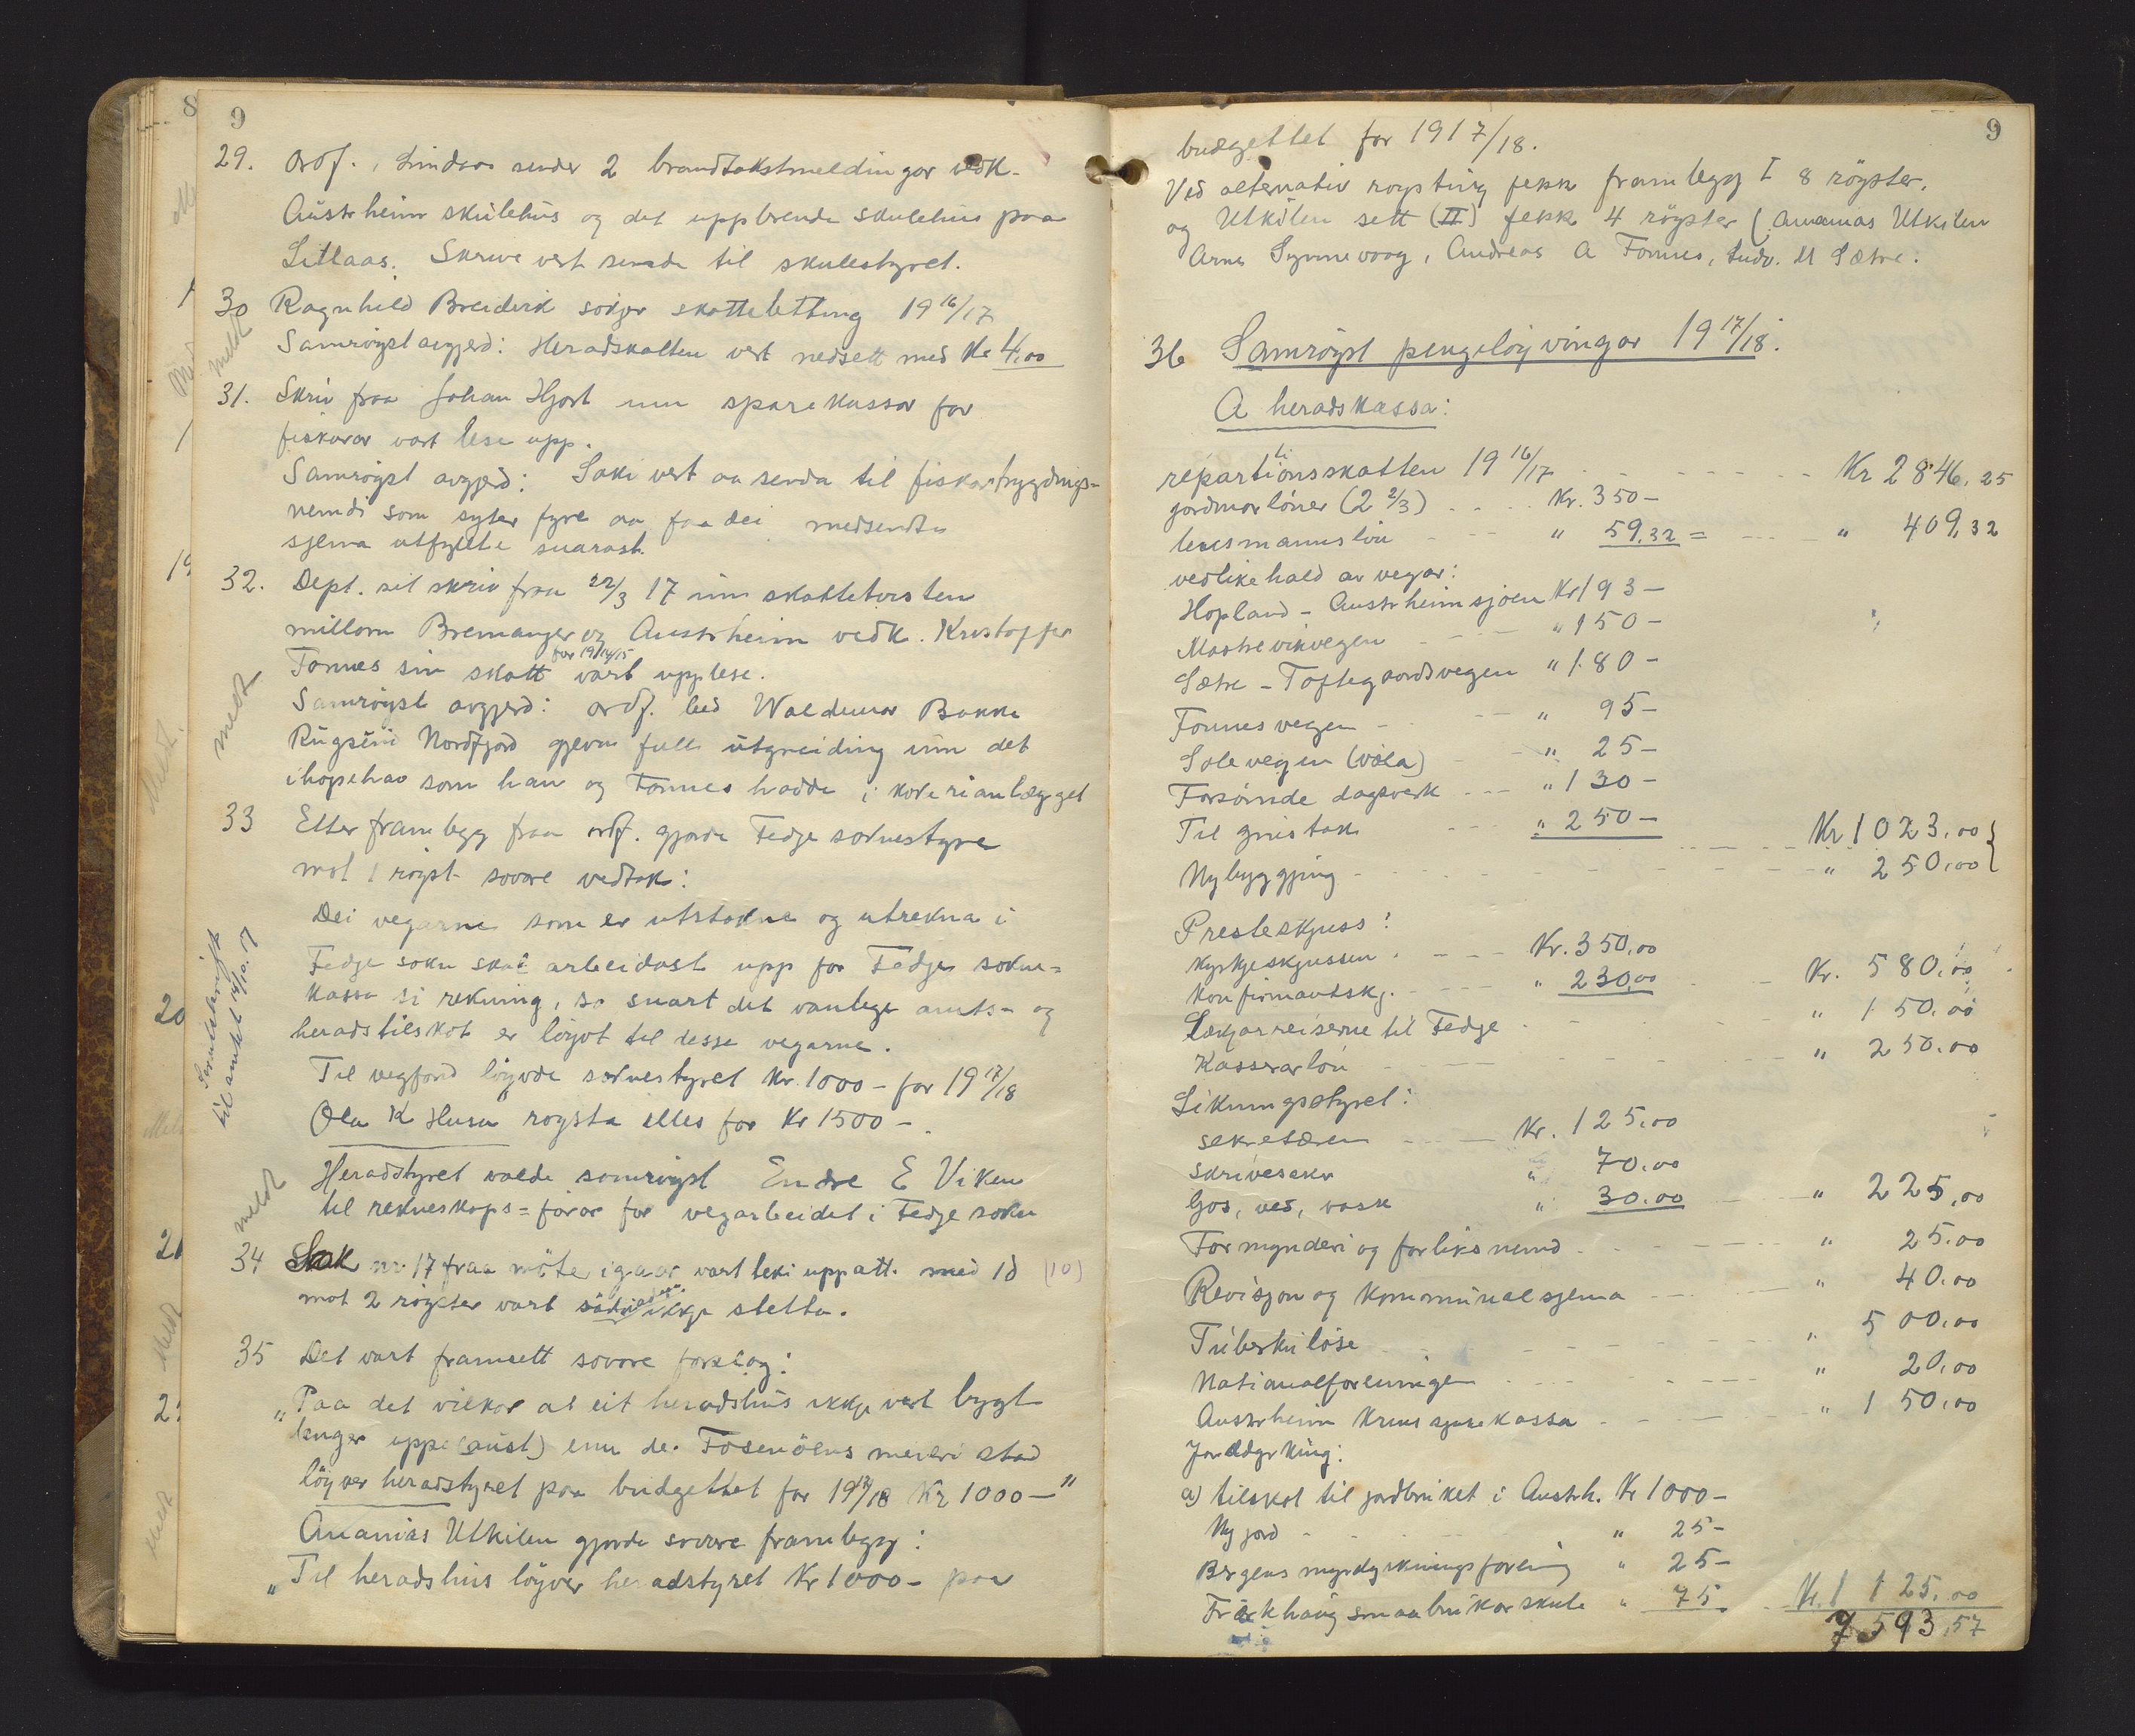 8
9
29. Ordf. i Lindaas sender 2 brandtakstmeldingar vedk.
Austrheim skulehus og det uppbrende skulehus paa
Litlaas. Skrive vert sende til skulestyret.
30 Ragnhild Breidvik søkjer skatteletting 19 16/17
meldt
Samrøyst avgjerd: Heradskatten vert nedsett med Kr 4,00
31. Skriv fraa Johan Hjort um sparekassar for
fiskarar vart lese upp.
Samrøyst avgjerd: Saki vert aa senda til fiskartrygdings-
nemdi som syter fyre aa faa dei medsendte
sjema utfyllte snarast.
32. Dept. sit skriv fraa 22/3 17 um skattetvisten
millom Bremanger og Austrheim vedk. Kristoffer
Fonnes sin skatt for 1914/15 vart upplese.
meldt
Samrøyst avgjerd: ordf. bed Waldemar Bakke
Rugsund Nordfjord gjeva full utgreiding um det
ihopehav som han og Fonnes hadde i
33 Etter framlegg fraa ordf. gjorde Fedje soknestyre
mot 1 røyst sovore vedtak:
Dei vegarne som er utstakna og utrekna i
Fedje sokn skal arbeidast upp for Fedje sokne-
kassa si rekning, so snart det vanlege amts- og
heradstilskot er løyvt til desse vegarne.
Særutskrift
til amtet 14/10.17
Til vegfond løyvde soknestyret Kr. 1000 - for 19 17/18
Ola K Husa røysta elles for Kr 1500 -.
Heradstyret valde samrøyst Endre E Viken
til rekneskaps-førar for vegarbeidet i Fedje sokn
meldt
34 Sak nr. 17 fraa møte igaar vart teki uppatt. med 10 (10)
mot 2 røyster vart ikkje stetta.
35 Det vart framsett sovore forslag:
"Paa det vilkor at eit heradshus ikkje vert bygt
lenger uppe (aust) enn de. Fosenøens meieri stad
løyver heradstyret paa budgettet for 19 17/18 Kr 1000 -"
Ananias Utkilen gjorde sovore framlegg:
"Til heradshus løyver heradstyret Kr 1000 - paa
9
budgettet for 1917/18.
Ved alternativ røysting fekk framlegg I 8 røyster,
og Utkilen sett (II) fekk 4 røyster (Ananias Utkilen
Arne Synnevaag, Andreas A Fonnes, Ludv. M Sætre.
36 Samrøyst pengeløyvingar 19 17/18.
A heradskassa:
repartitionsskatten 19 16/17 - - - Kr 2846,25
jordmorløner (2 2/3) .... Kr. 350 -
lensmannsløn - - - " 59,32 = - - - " 409,32
vedlikehald av vegar:
Hopland - Austrheimsjøen Kr 193 -
Mastrevikvegen - - - " 150 -
Sætre - Toftegaardsvegen " 180 -
Fonnesvegen - - - " 95 -
Solevegen (våla) - " 25 -
Forsømde dagsverk - - - " 130 -
Til grustak - - - " 250 - Kr 1023,00
Nybyggjing - - - " 250,00
Presteskjuss:
Kyrkjeskjussen - - - Kr. 350,00
Konfirmantskj. - - - " 230,00 - - - Kr. 580,00
Lækjarreiserne til Fedje - - - " 150,00
Kasserarløn - - - " 250.00
Likningsstyret:
sekretæren - - - Kr. 125,00
skrivesaker " 70,00
ljos, ved, vask " 30.00 - - - " 225,00
Formynderi og forliksnemd - - - " 25.00
Revisjon og kommunalsjema - - - " 40.00
Tuberkuløse - - - " 500,00
Nationalforeningen - - - " 20,00
Austrheim krins sjukekassa - - - " 150,00
Jorddyrking:
a) tilskot til jordbruket i Austrh. Kr 1000 -
Ny jord - - - " 25 -
Bergens myrdyrkningsforening " 25 -
Frækhaug smaabrukarskule " 75. Kr. 1 125,00
7593,57